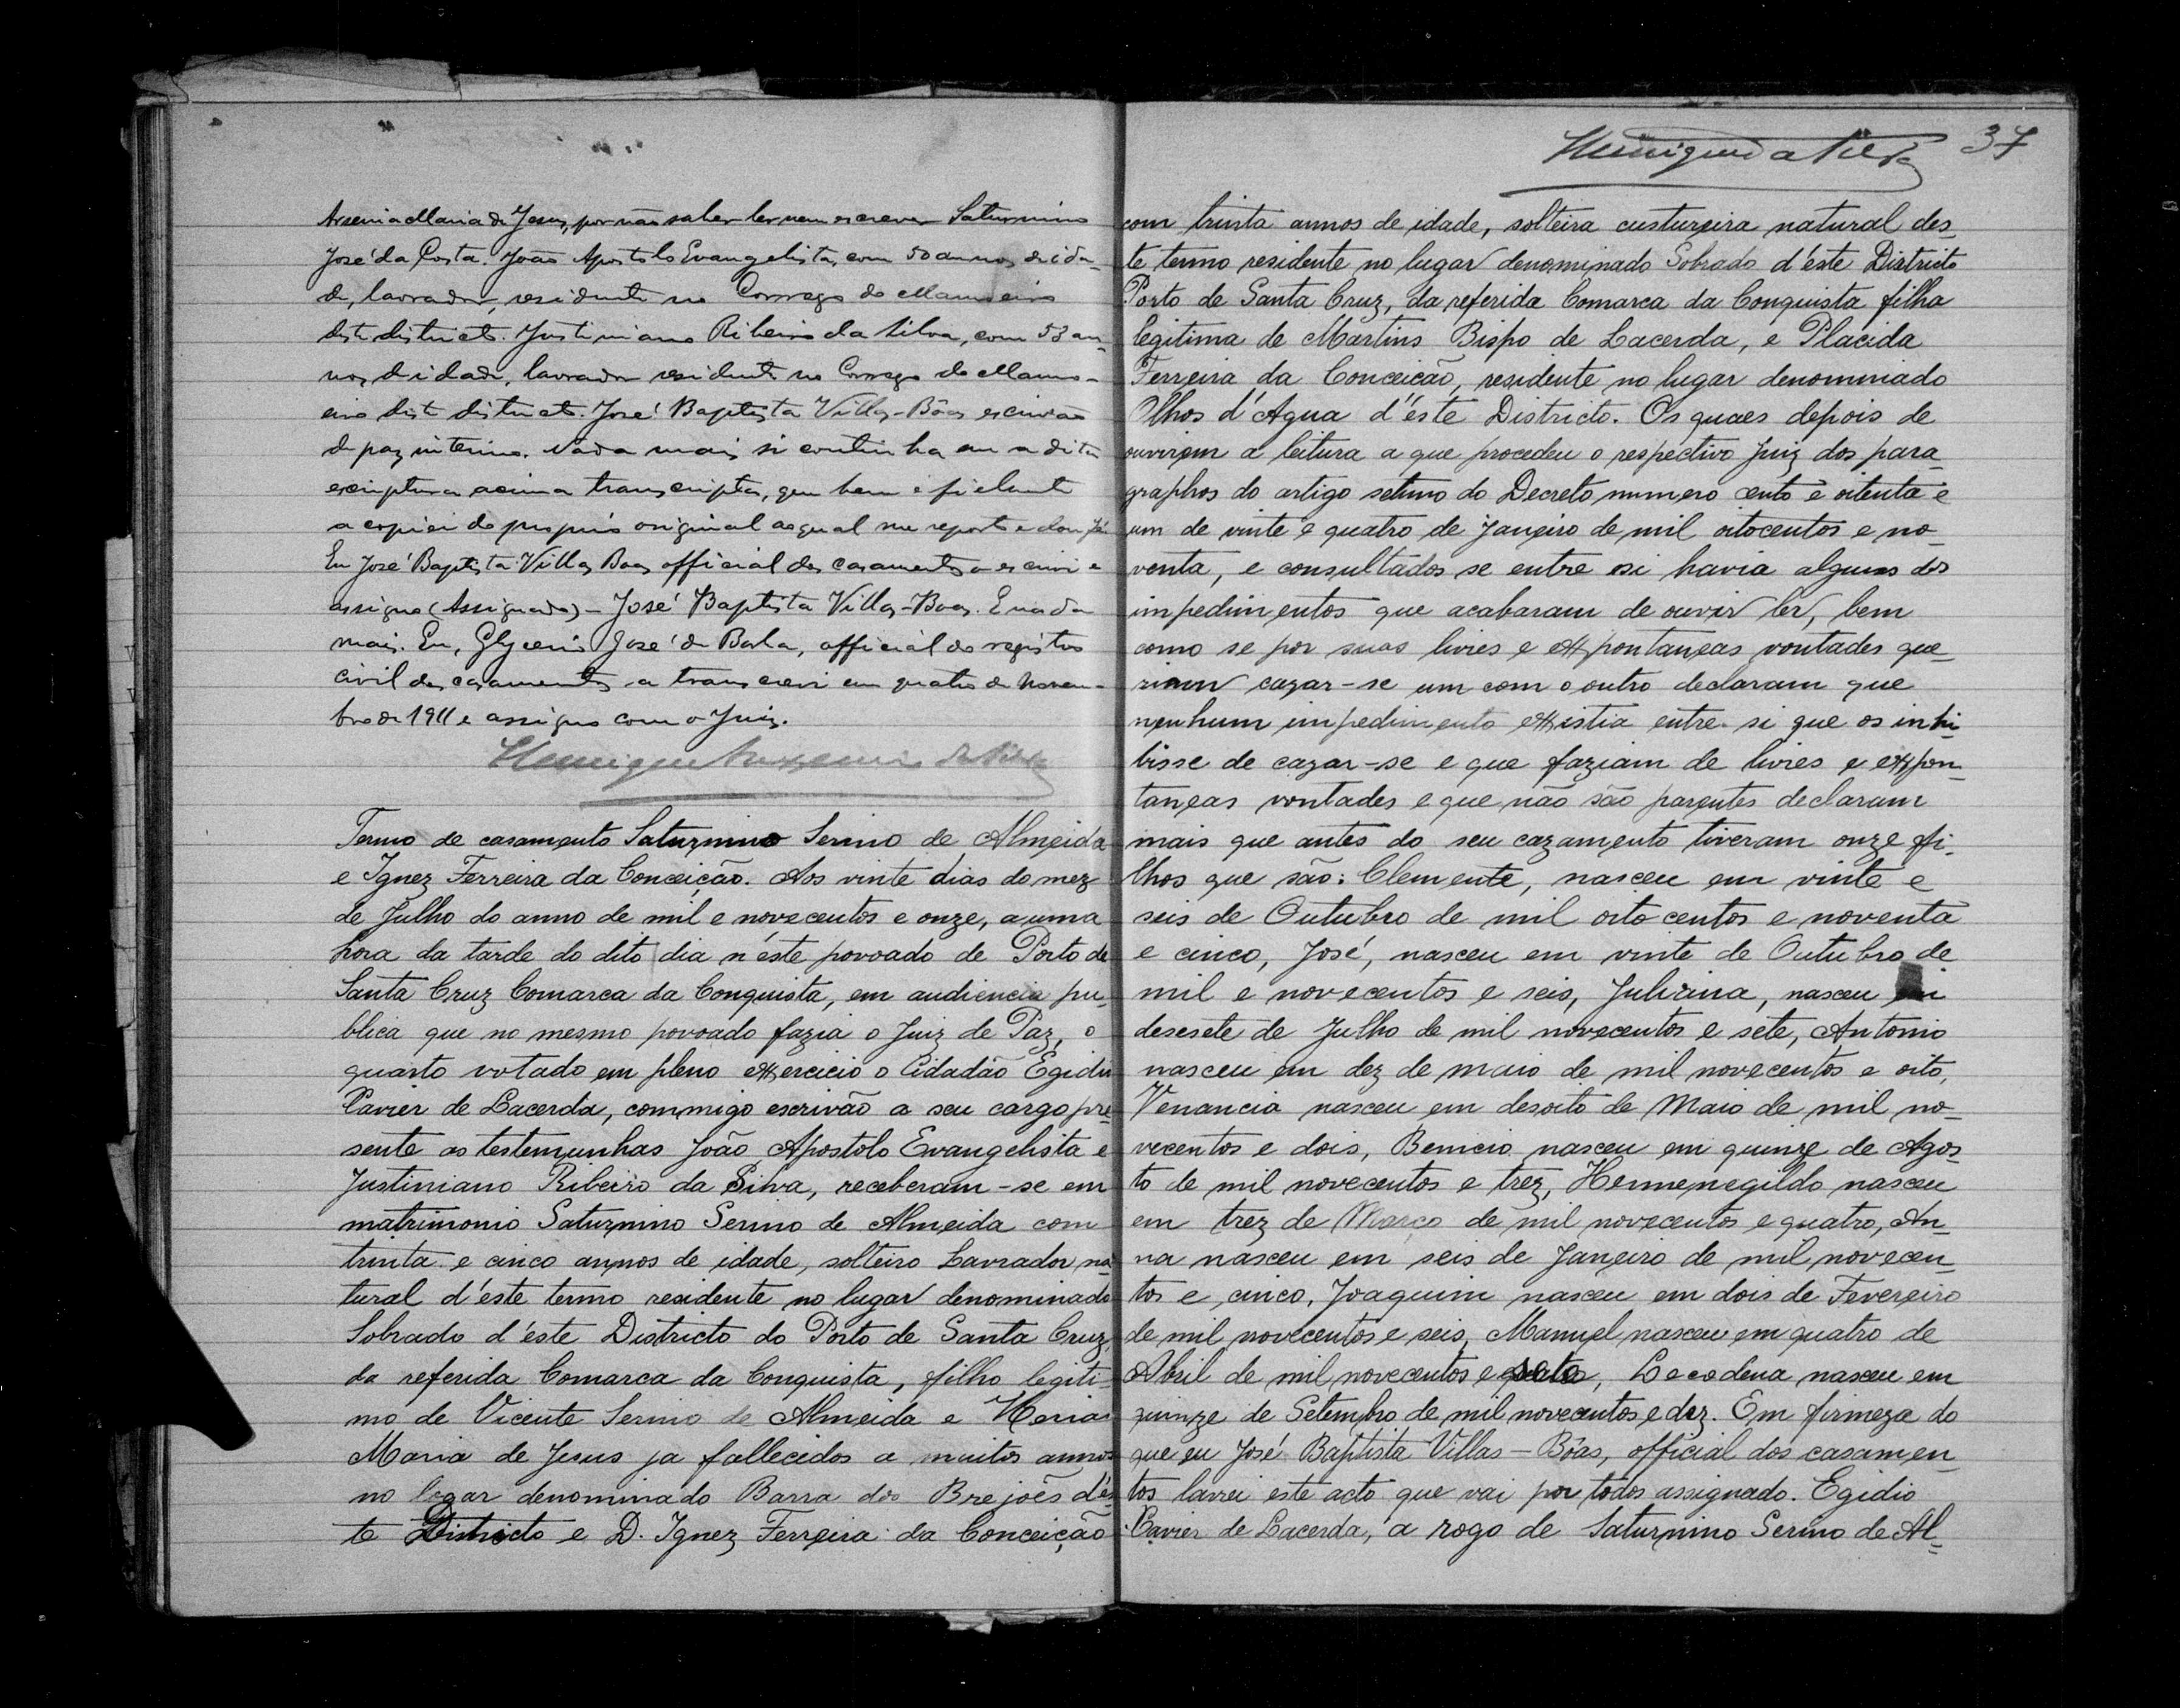 Arsenia Maria de Jesus, por não saber ler nem escrever Saturnino
José da Costa. João Apostolo Evangelista, com 50 annos de ida-
de, lavrador, residente no Corrego do
deste districto. Justiniano Ribeiro da Silva, com 53 an-
nos de idade, lavrador residente no Corrego do
deste districto. José Baptista Villas-Bôas escrivão
de paz interino. Nada mais si continha em a dita
escriptura acima transcripta, que bem e fielmente
a copiei do proprio original ao qual me reporto e dou fé.
Eu José Baptista Villas Boas official dos casamentos o escrevi e
assigno (Assignado) - José Baptista Villas-Boas. E nada
mais. Eu, Glycerio José da , official do registro
civil dos casamentos a transcrevi em quatro de Novem-
bro de 1911 e assigno com o Juiz.
Henrique da Silva
Termo de casamento Saturnino Serino de Almeida
e Ignez Ferreira da Conceição. Aos vinte dias do mez
de Julho do anno de mil e novecentos e onze, a uma
hora da tarde do dito dia n'éste povoado de Porto de
Santa Cruz Comarca da Conquista, em audiencia pu-
blica que no mesmo povoado fazia o Juiz de Paz, o
quarto votado em pleno exercicio o Cidadão Egidio
Cavier de Lacerda, commigo escrivão a seu cargo pre-
sente as testemunhas João Apostolo Evangelista e
Justiniano Ribeiro da Silva, receberam-se em
matrimonio Saturnino Serino de Almeida com
trinta e cinco annos de idade, solteiro Lavrador na-
tural d'éste termo residente no lugar denominado
Sobrado d'éste Districto do Porto de Santa Cruz,
da referida Comarca da Conquista, filho legiti-
mo de Vicente Serino de Almeida e
Maria de Jesus ja fallecidos a muitos annos
no logar denominado Barra dos Brejoẽs d'és-
te Districto e D. Ignez Ferreira da Conceição
Henrique da Silva 37
com trinta annos de idade, solteira custureira natural des-
te termo residente no lugar denominado Sobrado d'éste Districto
Porto de Santa Cruz, da referida Comarca da Conquista filha
legitima de Martins Bispo de Lacerda, e Placida
Ferreira da Conceição, residente no lugar denominado
Olhos d'Agua d'éste Districto. Os quaes depois de
ouvirem a leitura a que procedeu o respectivo Juiz dos para-
graphos do artigo setimo do Decreto numero cento e oitenta e
um de vinte e quatro de Janeiro de mil oitocentos e no-
venta, e consultados se entre si havia algum dos
impedimentos que acabaram de ouvir ler, bem
como se por suas livres e expontaneas vontades que-
riam cazar-se um com o outro declaram que
nenhum impedimento existia entre si que os inhi-
bisse de cazar-se e que faziam de livres e expon-
taneas vontades e que não são parentes declaram
mais que antes do seu cazamento tiveram onze fi-
lhos que são: Clemente, nasceu em vinte e
seis de Outubro de mil oito centos e noventa
e cinco, José, nasceu em vinte de Outubro de
mil e novecentos e seis, Juliana, nasceu em
desesete de Julho de mil novecentos e sete, Antonio
nasceu em dez de maio de mil novecentos e oito,
Venancia nasceu em desoito de Maio de mil no-
vecentos e dois, Benicio nasceu em quinze de Agos-
to de mil novecentos e trez, Hermenegildo nasceu
em trez de Março de mil novecentos e quatro, An-
na nasceu em seis de Janeiro de mil novecen-
tos e cinco, Joaquim nasceu em dois de Fevereiro
de mil novecentos e seis, Manuel nasceu em quatro de
Abril de mil novecentos e sete, Leocadena nasceu em
quinze de Setembro de mil novecentos e dez. Em firmeza do
que eu José Baptista Villas-Bôas, official dos casamen-
tos lavrei este acto que vai por todos assignado. Egidio
Cavier de Lacerda, a rogo de Saturnino Serino de Al-